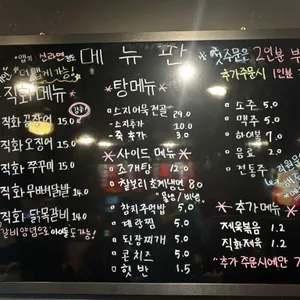 *맵기 신라면 정도 메뉴판 *첫주문은 2인분 부
더 맵게 가능! 추가주문시 1인분
직화메뉴*
직화 꼼장어 15.0
직화 오징어 15.0
직화 쭈꾸미 15.0
직화 무뼈닭발 14.0
직화 닭목갈비 14.0
갈비양념으로 이동도 가능!
*탕메뉴
◦스지어묵전골 29.0
10.0
◦죽 추가 3.0
*사이드메뉴*
◦조개탕 12.0
◦참치주먹밥 5.0
◦계란찜 5.0
◦된장찌개 5.0
◦콘치즈 5.0
◦햇반 1.5
◦도주 5.0
◦맥주 5.0
◦하이볼 7.0
◦음료 2.0
◦전통주
*추가메뉴
제육볶음 1.2
직화제육 1.2
*추가 주문시에만 7